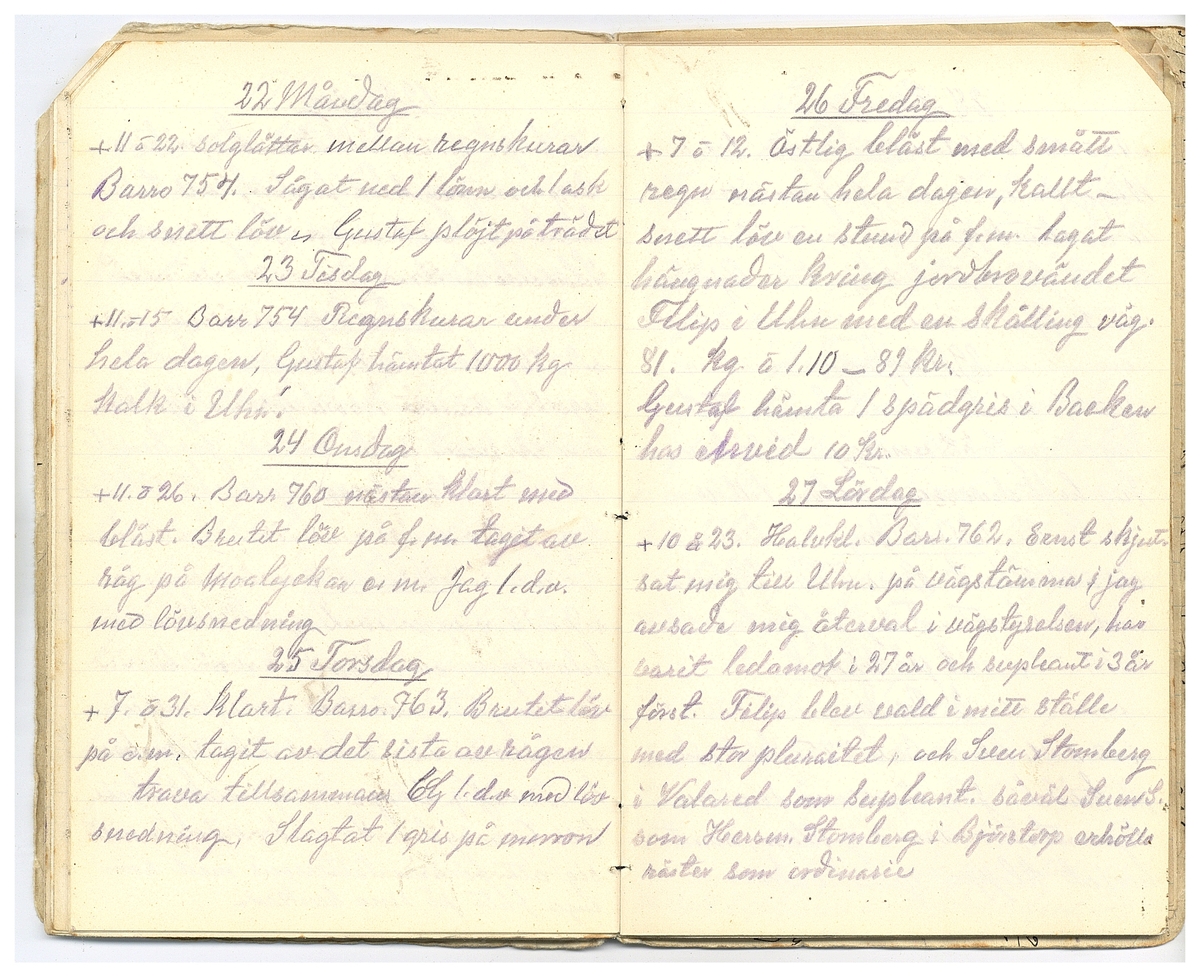 22 Måndag
+11 ō 22 solglåttar mellan regnskurar
Barro 754. Sågat ned 1 lönn och 1 ask
och snett löv " Gustaf plöjt på trädet
23 Tisdag
+11.ō15 Barr 754 Regnskurar under
hela dagen, Gustaf hämtat 1000 kg
kalk i Uhn.
24 Onsdag
+11. ō 26. Barr 760 nästan klart med
blåst. Brutet löv på f.m. tagit av
råg på Moalyckan e.m. Jag 1.d.v.
med lövsnedning
25 Torsdag
+7. ō 31. Klart. Barro. 763. Brutet löv
på e.m. tagit av det sista av rågen
trava tillsamman 1.d.v med löv
snedning, Slagtat 1 gris på morron
26 Fredag
+7 ō 12. Östlig blåst med smått
regn nästan hela dagen, kallt –
snett löv en stund på f.m. hagat
hängnader kring jordbrovändet
Filip i Uhn med en skålling väg.
81. kg ā 1.10 – 89 kr.
Gustaf hämta 1 spädgris i Backen
hos Arvid 10 kr.
27 Lördag
+10 ā 23. Halvkl. Barr. 762. Ernst skjut-
sat mig till Uhn. på vägstämma, jag
avsade mig återval i vägstyrelsen, har
varit ledamot i 27 år och supleant i 3 år
först. Filip blev vald i mitt ställe
med stor pluraitet, och Sven Stomberg
i Valared som supleant. såväl Sven S.
som Herm. Stomberg i Björstorp erhölls
röster som ordinarie